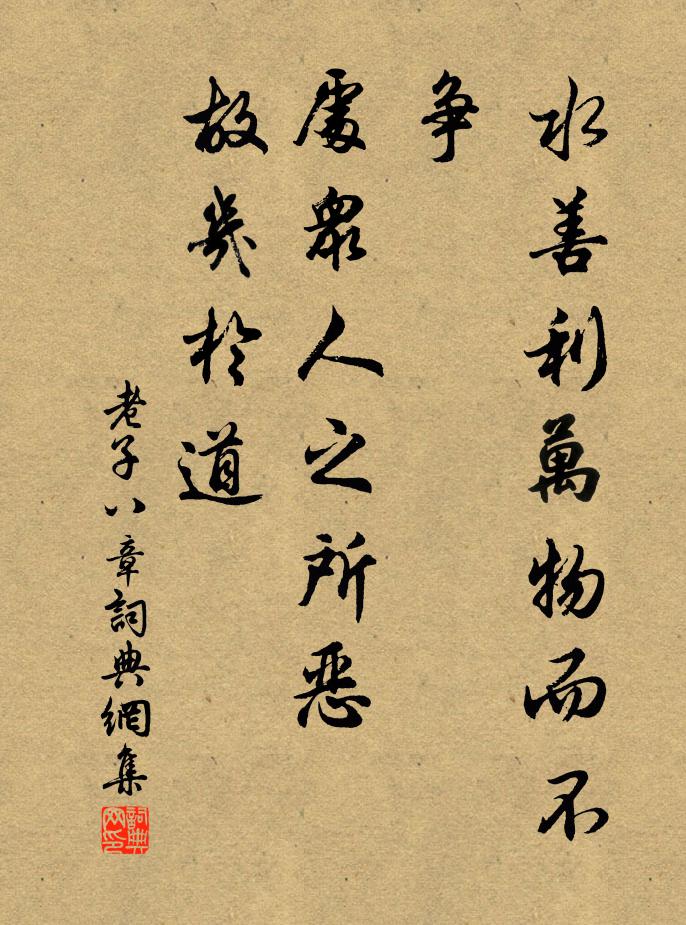 水善利萬物而不
争
處衆人之所惡
故幾於道
老子八章詞典網集
詞典
网印